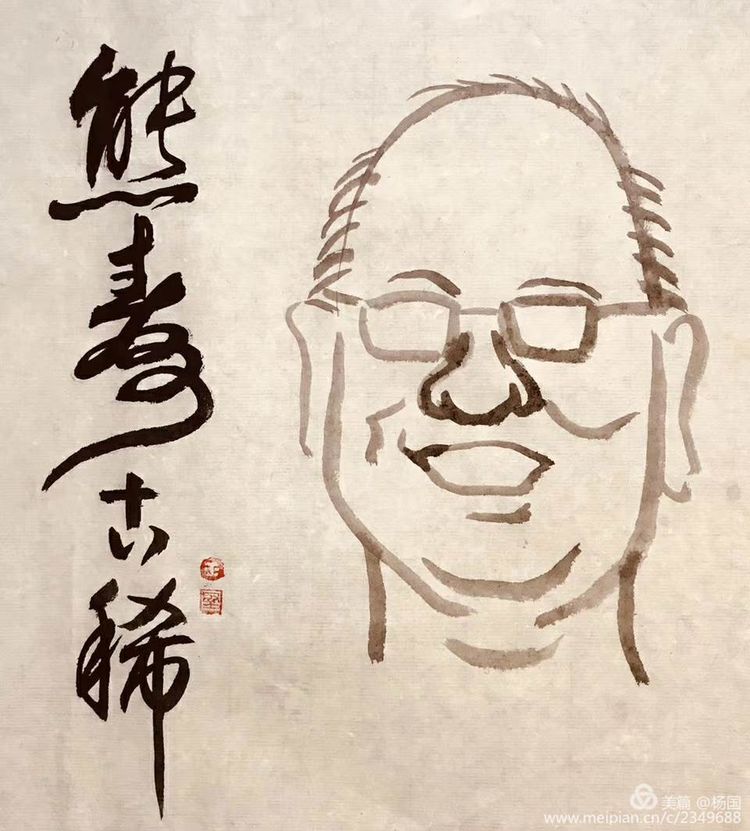 熊寿古稀
美篇 @杨国
www.meipian.cn/c/2349688